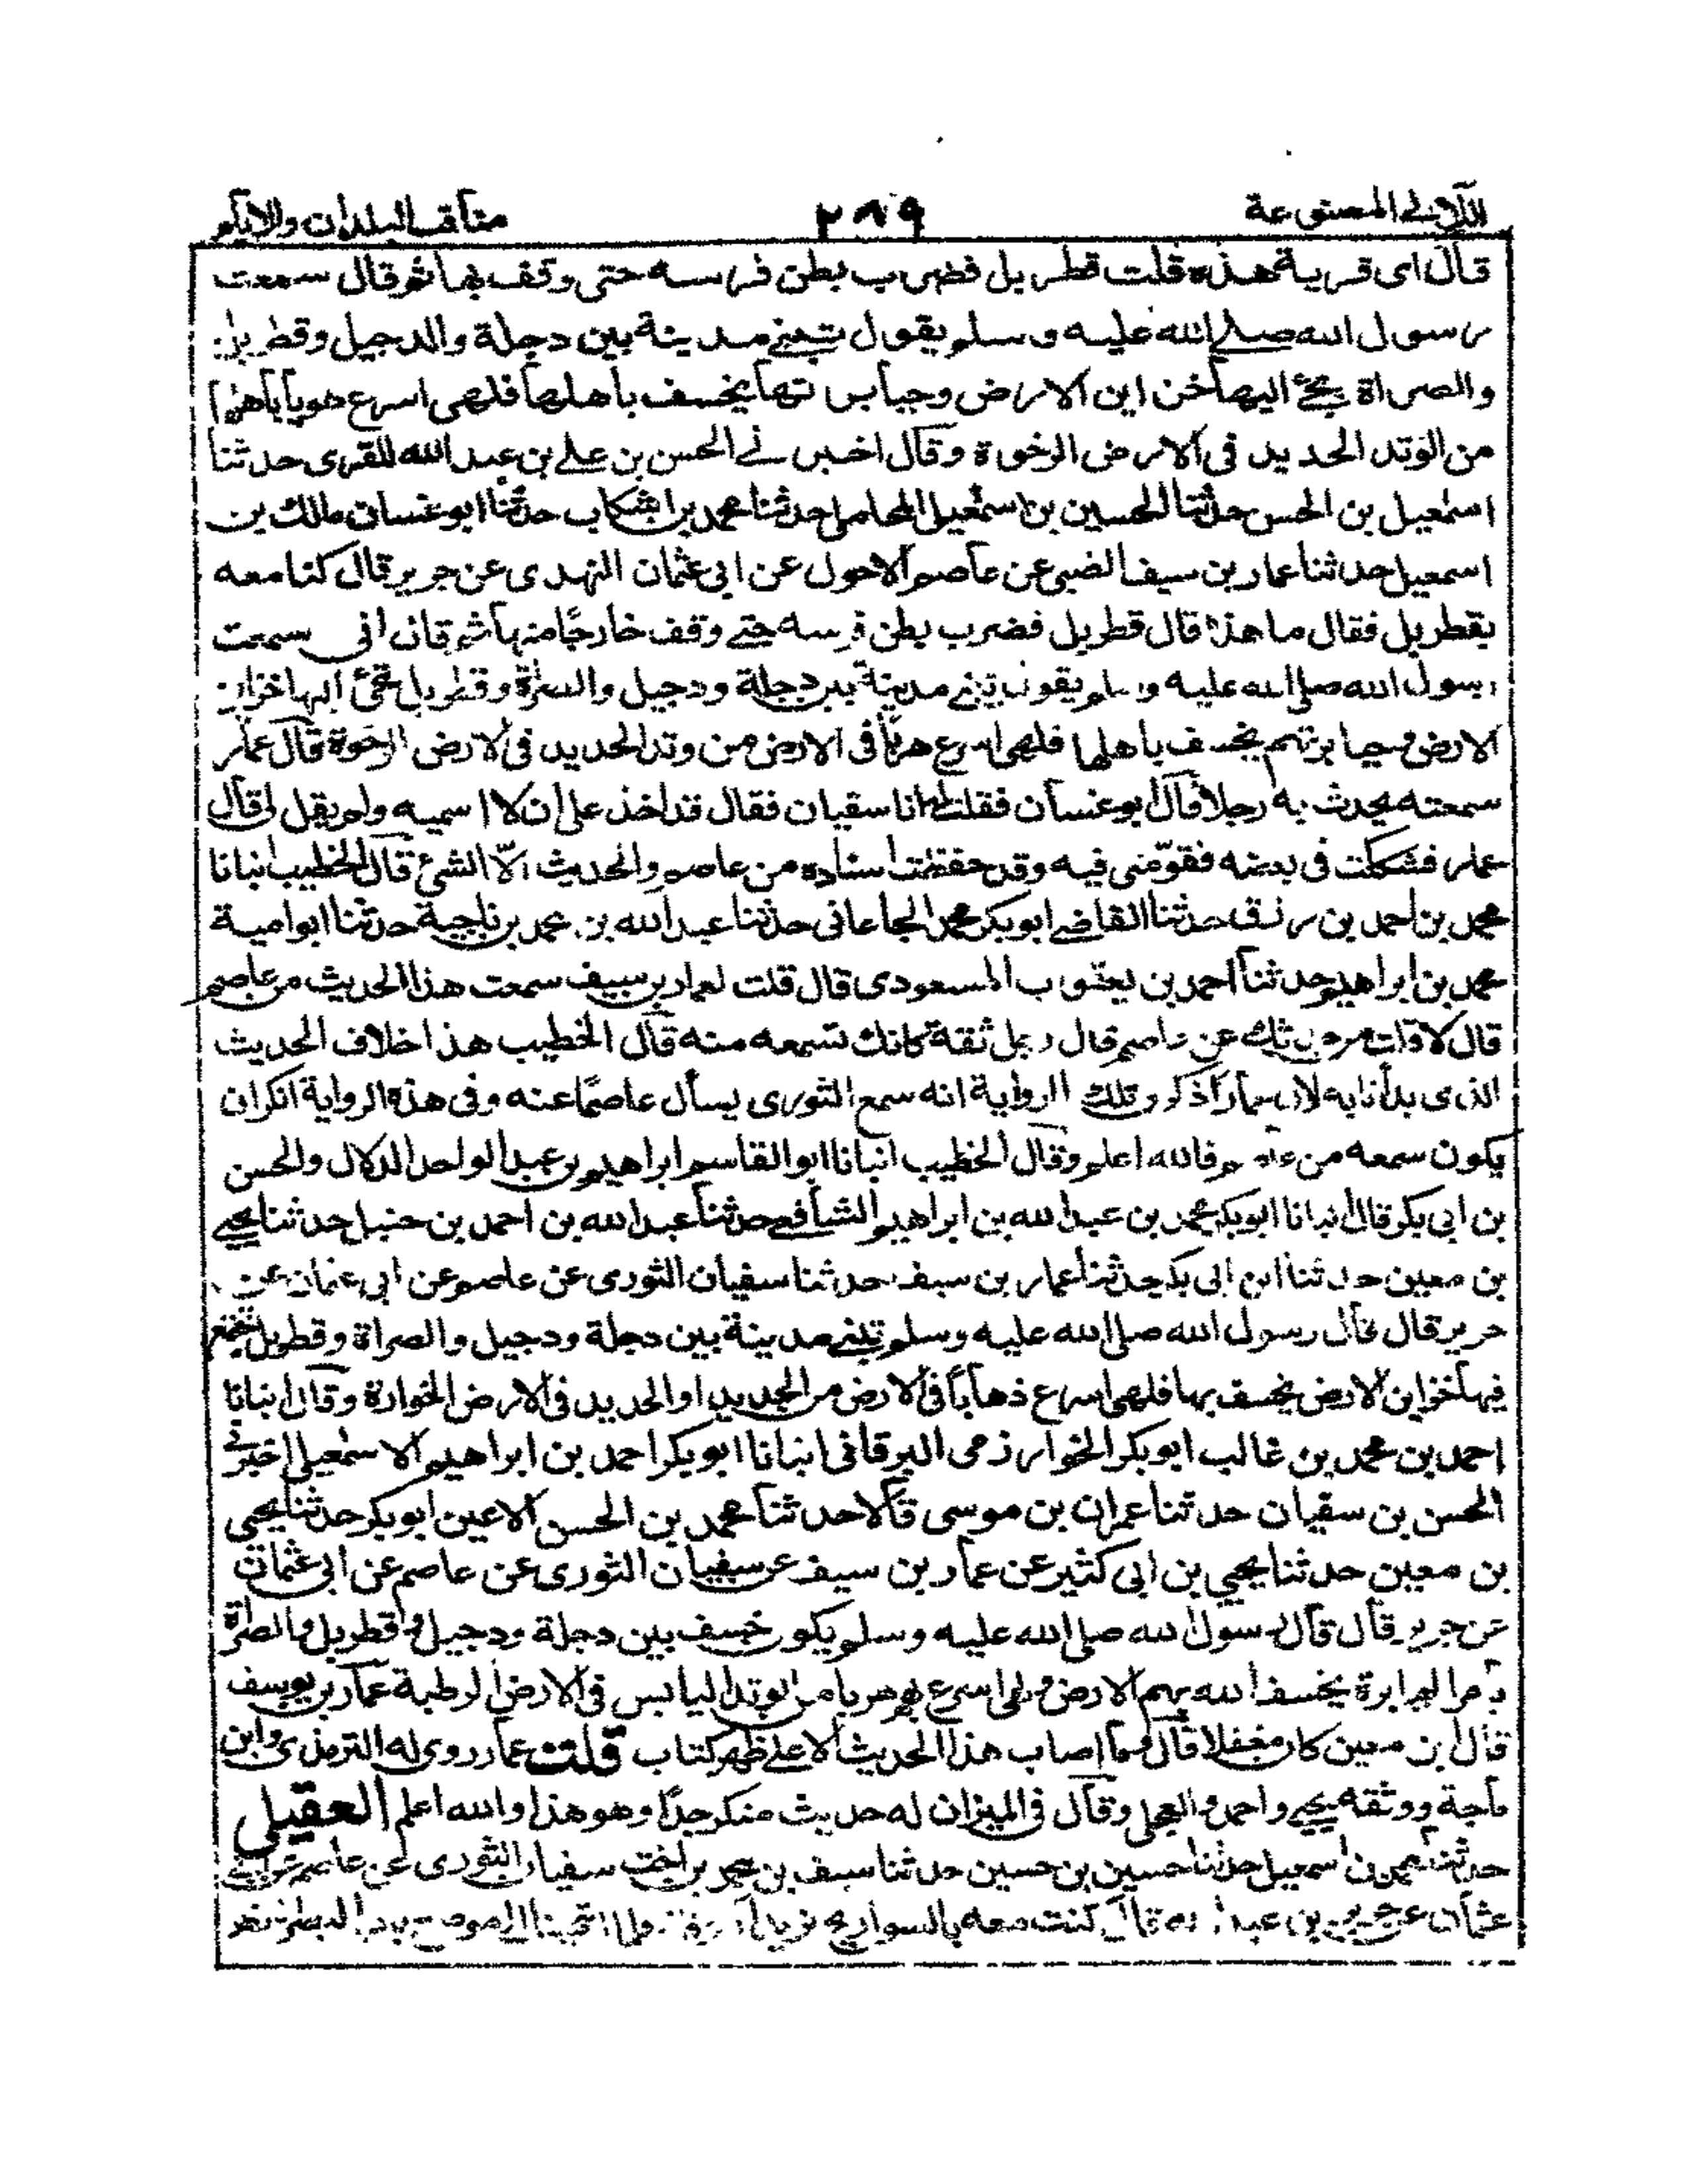 اللآلئ المصنوعة ٢٨٩ مناقب البلدان والايام
قال اى قرية هذه قلت قطربل فضرب بطن فرسه حتى وقف بها ثم قال سمعت
رسول الله صلى الله عليه وسلم يقول تبنى مدينة بين دجلة والدجيل وقطربل
والصراة يجئ اليها خزاين الارض وجبابرتها يخسف باهلها فلهى اسرع هويا باهلها
من الوتد الحديد فى الارض الرخوة وقال اخبرنى الحسن بن على بن عبد الله المقرى حدثنا
اسمعيل بن الحسن حدثنا الحسين بن اسمعيل المحاملى حدثنا محمد بن اشكاب حدثنا ابو غسان مالك بن
اسمعيل حدثنا عمار بن سيف الضبى عن عاصم الاحول عن ابى عثمان النهدى عن جرير قال كنا معه
بقطربل فقال ما هذا قال قطربل فضرب بطن فرسه حتى وقف خارجًا منها ثم قال انى سمعت
رسول الله صلى الله عليه وسلم يقول تبنى مدينة بين دجلة ودجيل والصراة وقطربل تجئ اليها خزاين
الارض وجبابرتهم يخسف باهلها فلهى اسرع هربا فى الارض من وتد الحديد فى الارض الرخوة قال عمار
سمعته يحدث به رجلا قال ابو غسان فقلت انا سفيان فقال قد اخذ على ان لا اسميه ولم يقل لى قال
عمار فشككت فى بعضه فقوّمنى فيه وقد حفظت اسناده من عاصم والحديث الّا الشئ قال الخطيب انبانا
محمد بن احمد بن رزق حدثنا القاضى ابو بكر محمد الجعانى حدثنا عبد الله بن محمد بن ناجية حدثنا ابو امية
محمد بن ابراهيم حدثنا احمد بن يعقوب المسعودى قال قلت لعمار بن سيف سمعت هذا الحديث من عاصم
قال لا قلت من حدثك عن عاصم قال رجل ثقة كانك تسمعه منه قال الخطيب هذا خلاف الحديث
الذى بدأنا به لان عمارا ذكر تلك الرواية انه سمع الثورى يسأل عاصمًا عنه وفى هذه الرواية انكر ان
يكون سمعه من عاصم فالله اعلم وقال الخطيب انبانا ابو القاسم ابراهيم بن عبد الواحد الدلال والحسن
بن ابى بكر قالا انبانا ابو بكر محمد بن عبد الله بن ابراهيم الشافعى حدثنا عبد الله بن احمد بن حنبل حدثنا يحيى
بن معين حدثنا ابن ابى بكر حدثنا عمار بن سيف حدثنا سفيان الثورى عن عاصم عن ابى عثمان عن
جرير قال قال رسول الله صلى الله عليه وسلم تبنى مدينة بين دجلة ودجيل والصراة وقطربل تجتمع
فيها خزاين الارض يخسف بها فلهى اسرع ذهابًا فى الارض من الحديد او الحديد فى الارض الخوارة وقال انبانا
احمد بن محمد بن غالب ابو بكر الخوارزمى البرقانى انبانا ابو بكر احمد بن ابراهيم الاسمعيلى اخبرنى
الحسن بن سفيان حدثنا عمران بن موسى قالا حدثنا محمد بن الحسن الاعين ابو بكر حدثنا يحيى
بن معين حدثنا يحيى بن ابى كثير عن عمار بن سيف عن سفيان الثورى عن عاصم عن ابى عثمان
عن جرير قال قال رسول الله صلى الله عليه وسلم يكون خسف بين دجلة ودجيل وقطربل والصراة
بامرا الجبابرة يخسف الله بهم الارض ولهى اسرع بهم هربا من الوتد اليابس فى الارض الرطبة عمار بن يوسف
قال ابن معين كان مغفلا قال فما اصاب هذا الحديث الا على ظهر كتاب قلت عمار روى له الترمذى وابن
ماجة ووثقه يحيى واحمد والعجلى وقال فى الميزان له حديث منكر جدًا وهو هذا والله اعلم العقيلى
حدثنا محمد بن اسمعيل حدثنا حسين بن حسين حدثنا سيف بن محمد بن اخت سفيان الثورى عن عاصم عن ابى
عثمان عن جرير بن عبد الله قال كنت معه بالسواريح